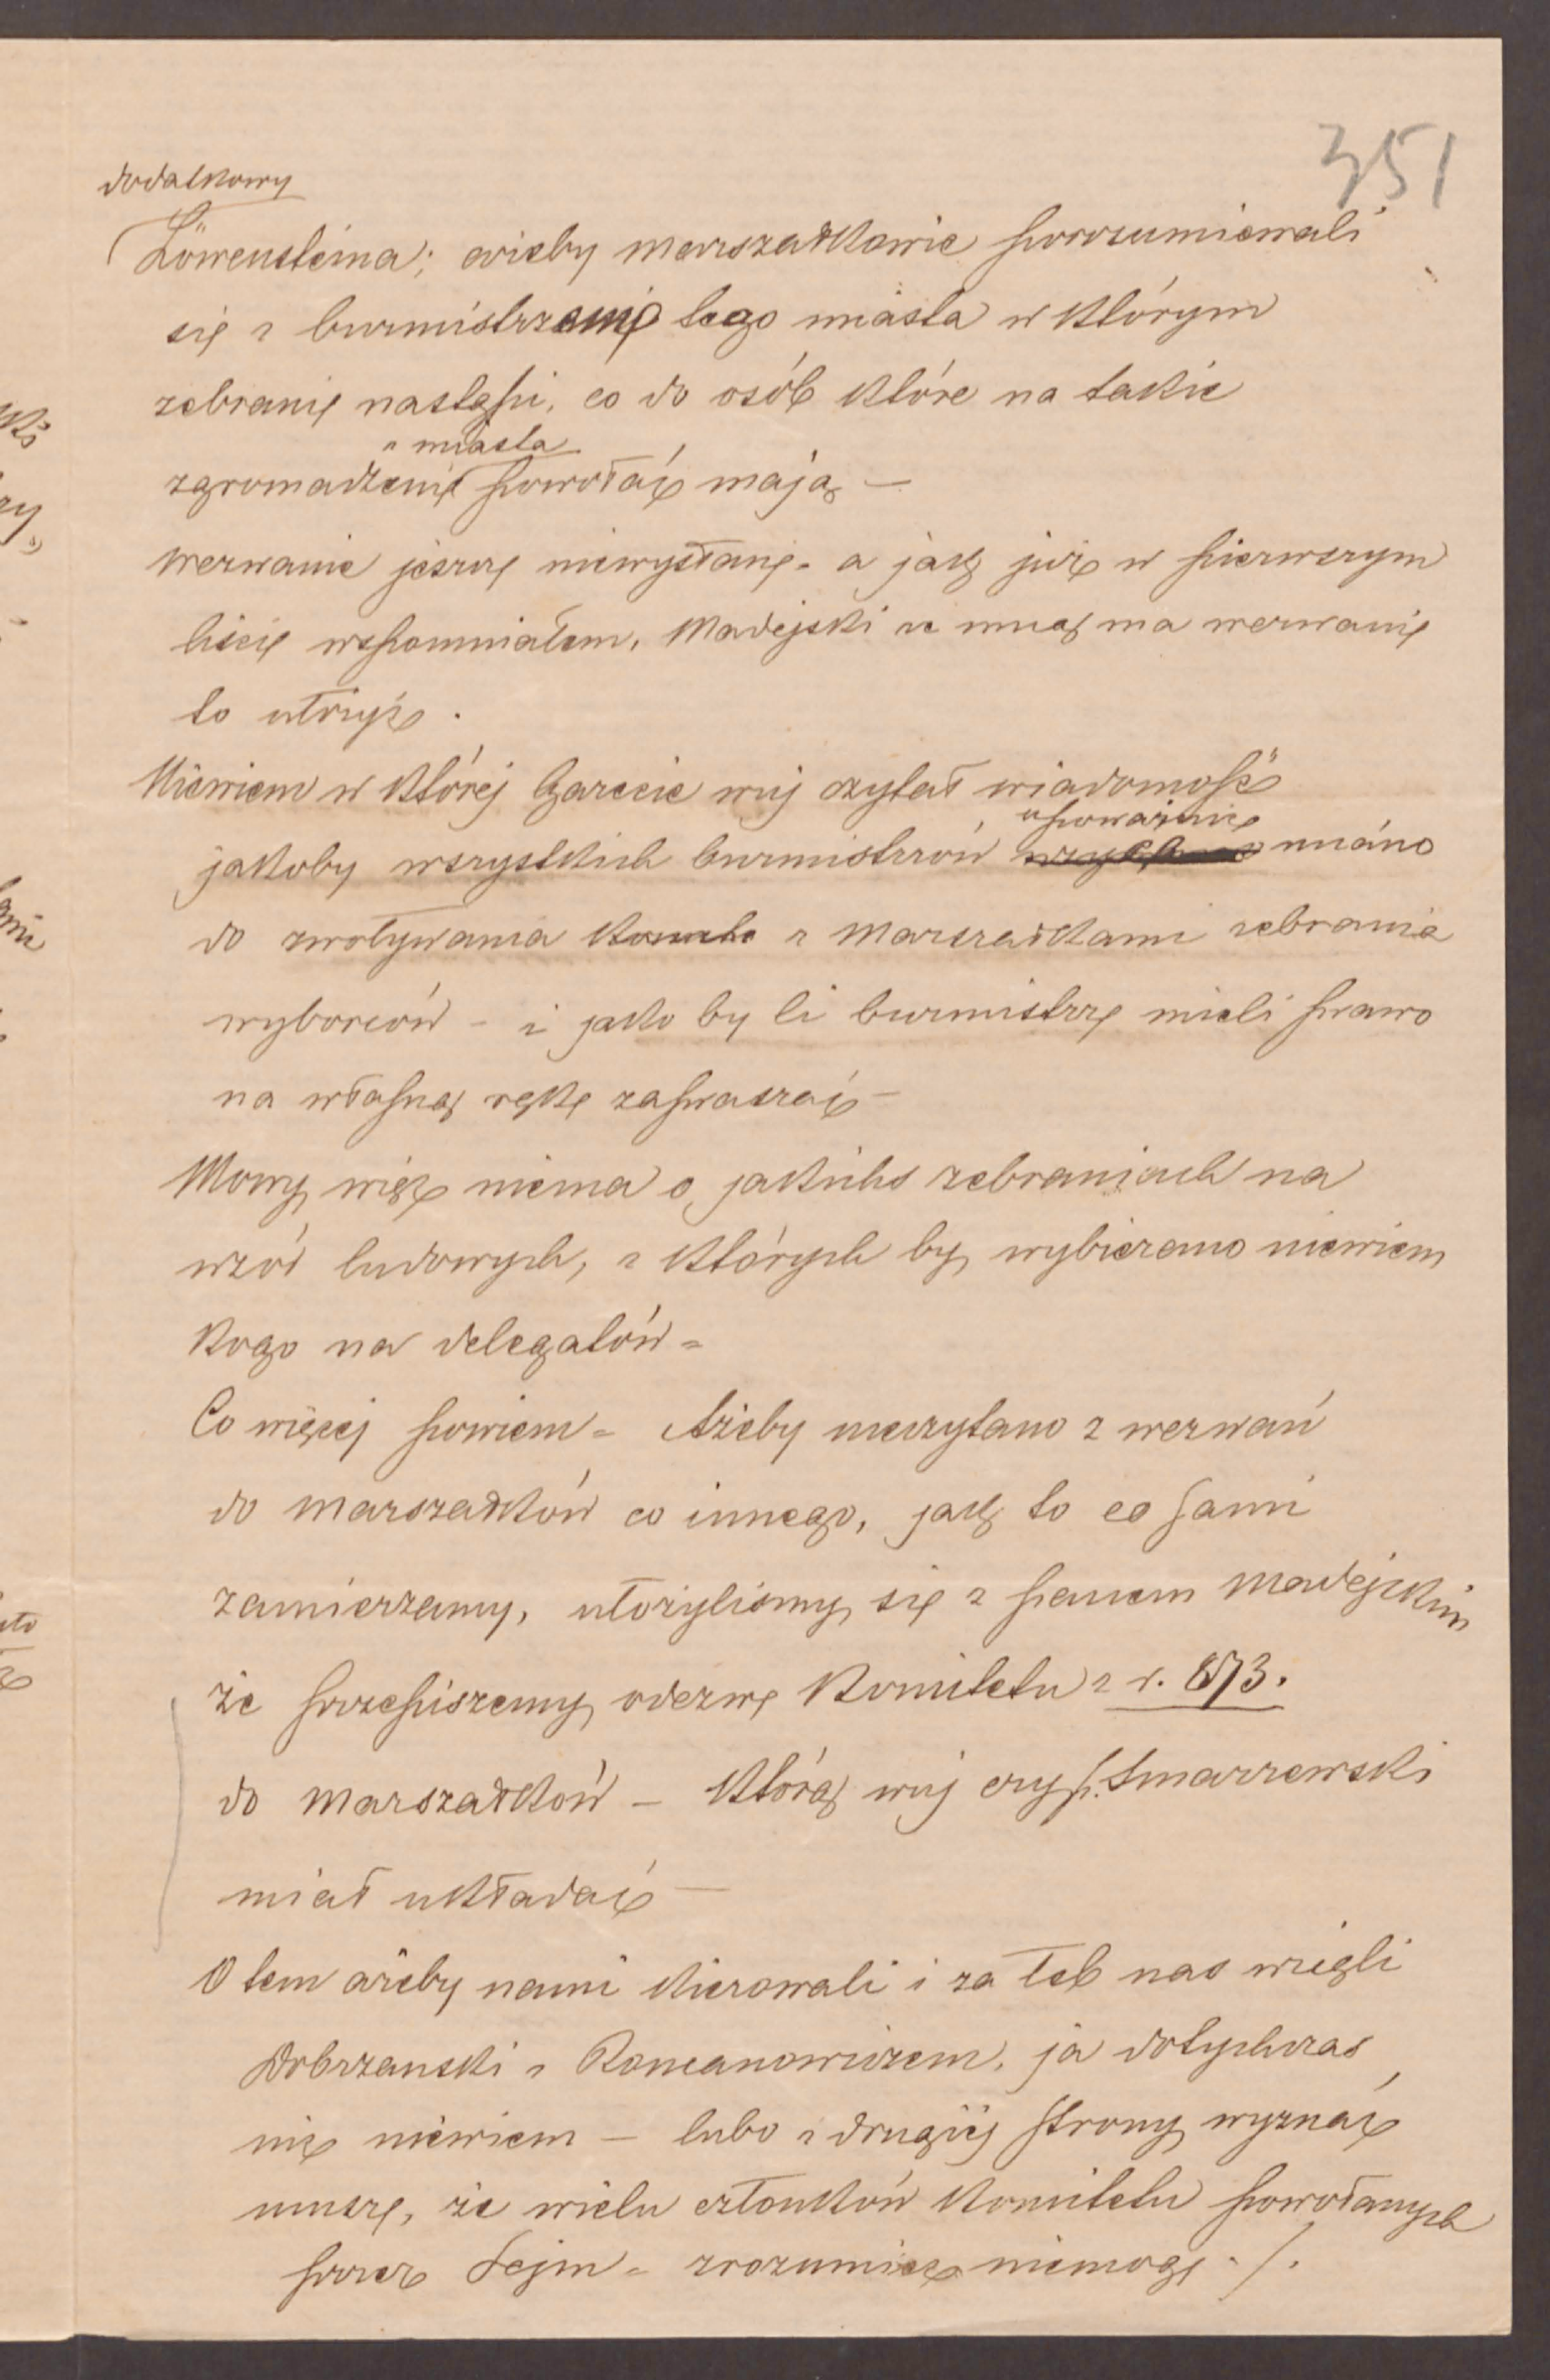 351
dodatkowy
Löwensteina; ażeby marszałkowie porozumiewali
się z burmistrzami tego miasta w którym
zebranie nastąpi, co do osób które na takie
z miasta
zgromadzenie powołać mają —
Wezwanie jeszcze niewysłane - a jak już w pierwszym
liście wspomniałem, Madejski ze mną ma wezwanie
to ułożyć.
Niewiem w której Gazecie wuj czytał wiadomość
upoważnić
jakoby wszystkich burmistrzów miano
do zwoływania z Marszałkami zebrania
wyborców - i jako by ci burmistrze mieli prawo
na własną rękę zapraszać —
Mowy więc niema o jakichś zebraniach na
wzór ludowych, z których by wybierano niewiem
kogo na delegatów =
Co więcej powiem = Ażeby nieczytano z wezwań
do marszałków co innego, jak to co sami
zamierzamy, ułożyliśmy się z panem Madejskim
że przepiszemy odezwę Komitetu z r. 873.
do marszałków — którą wuj czy p. Smarzewski
miał układać —
O tem ażeby nami kierowali i za łeb nas wzięli
Dobrzanski z Romanowiczem, ja dotychczas
nic niewiem — lubo z drugiej strony wyznać
muszę, że wielu członków Komitetu powołanych
przez Sejm = zrozumieć niemogę ./.